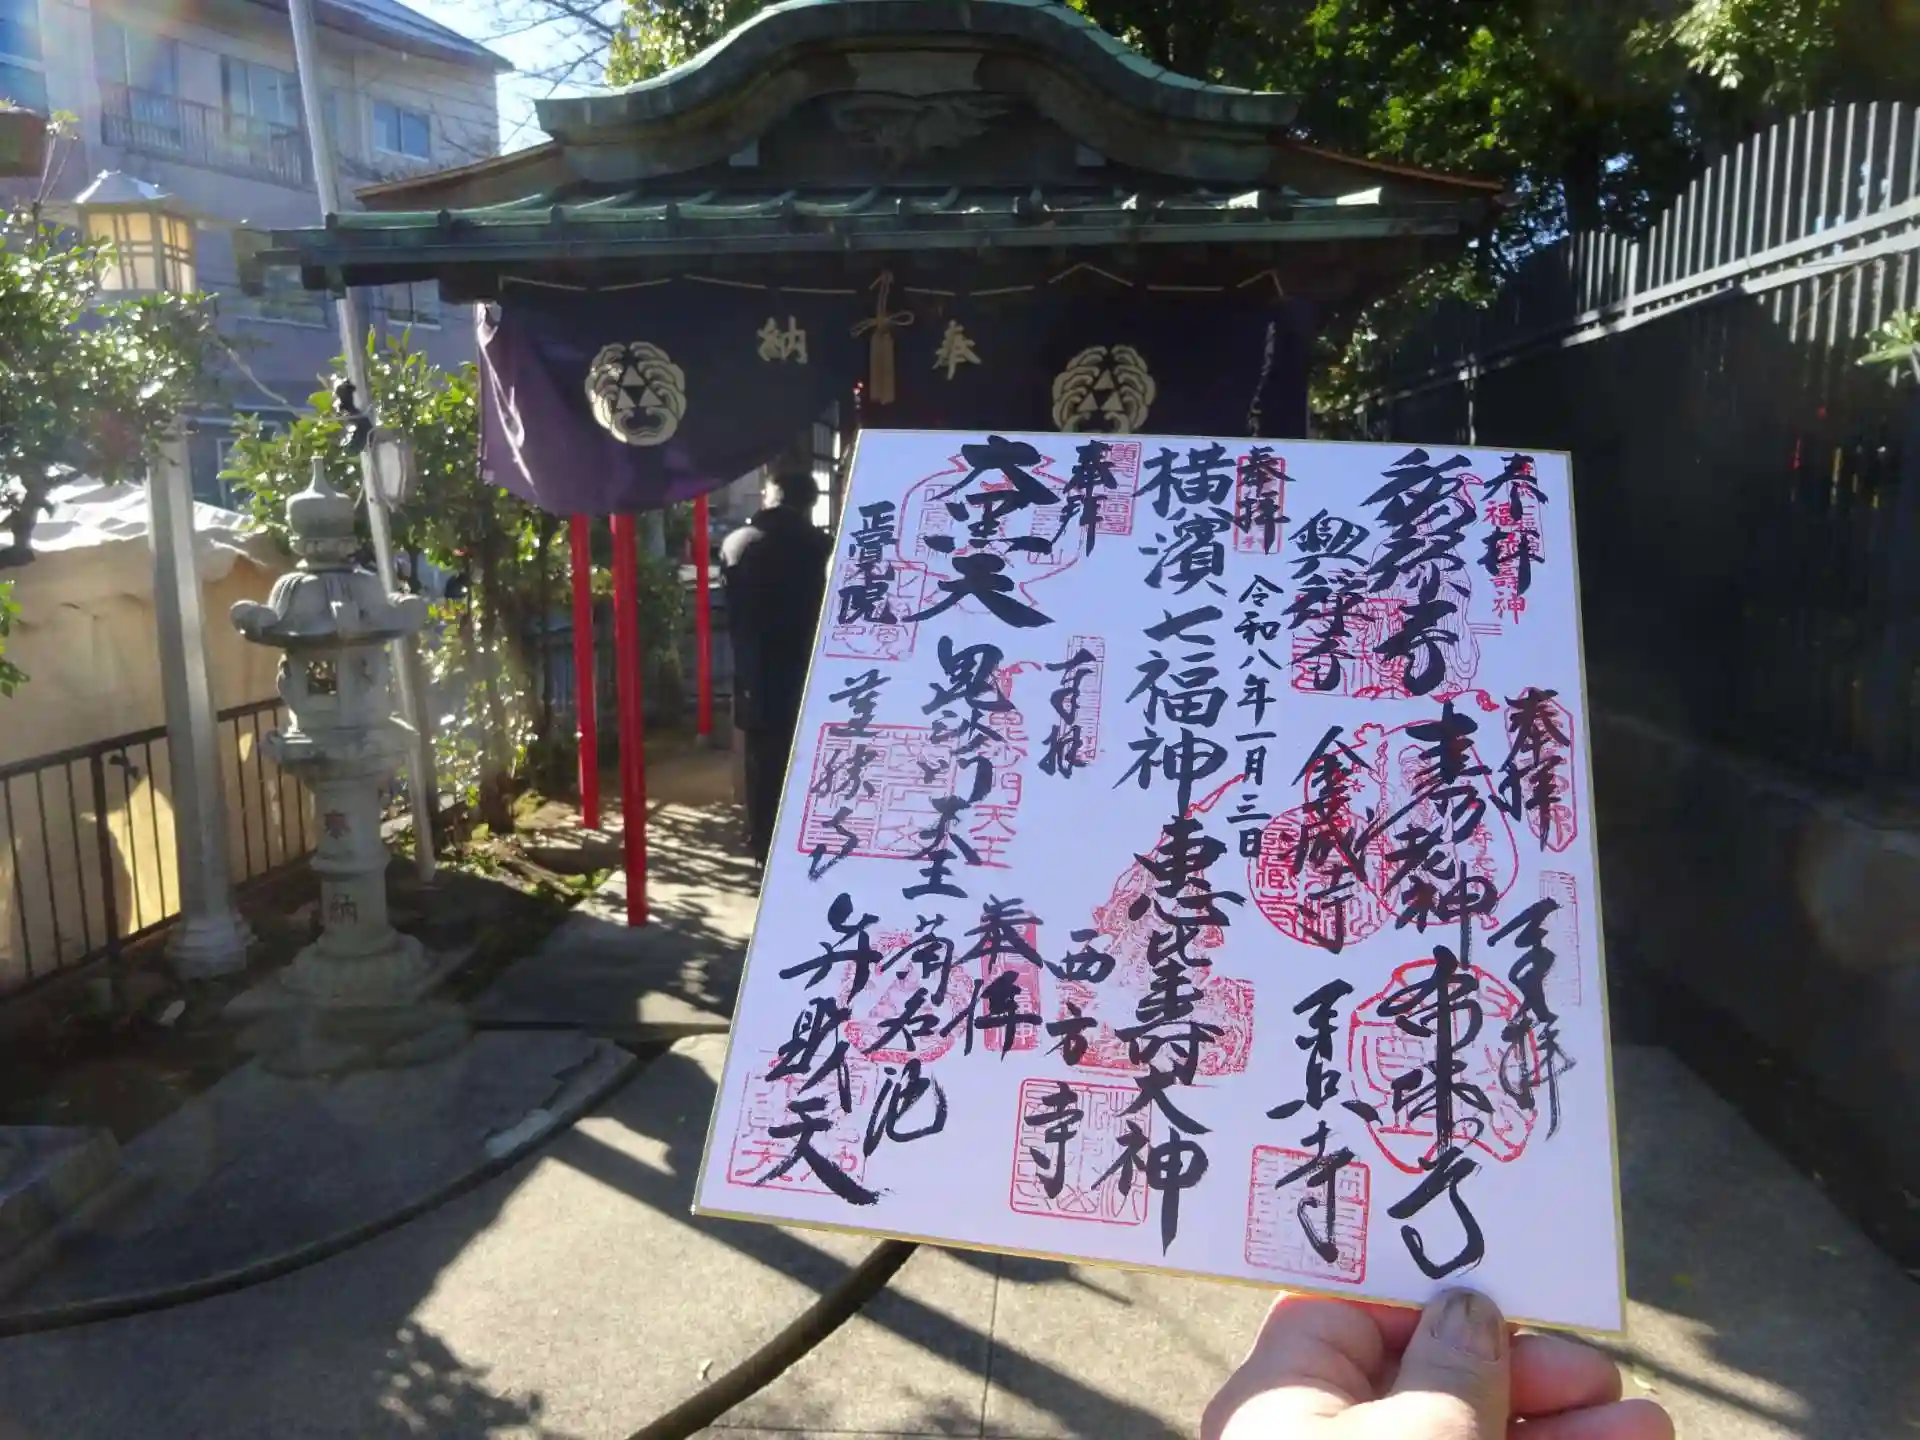 奉納
奉納
奉拝
福禄寿神
興禅寺
奉拝
寿老神
金蔵寺
奉拝
布袋尊
奉拝
令和八年一月三日
横濱七福神
恵比寿大神
西方寺
奉拝
大黒天
正覚院
奉拝
毘沙門天王
蓮勝寺
奉拝
菊名池
弁財天